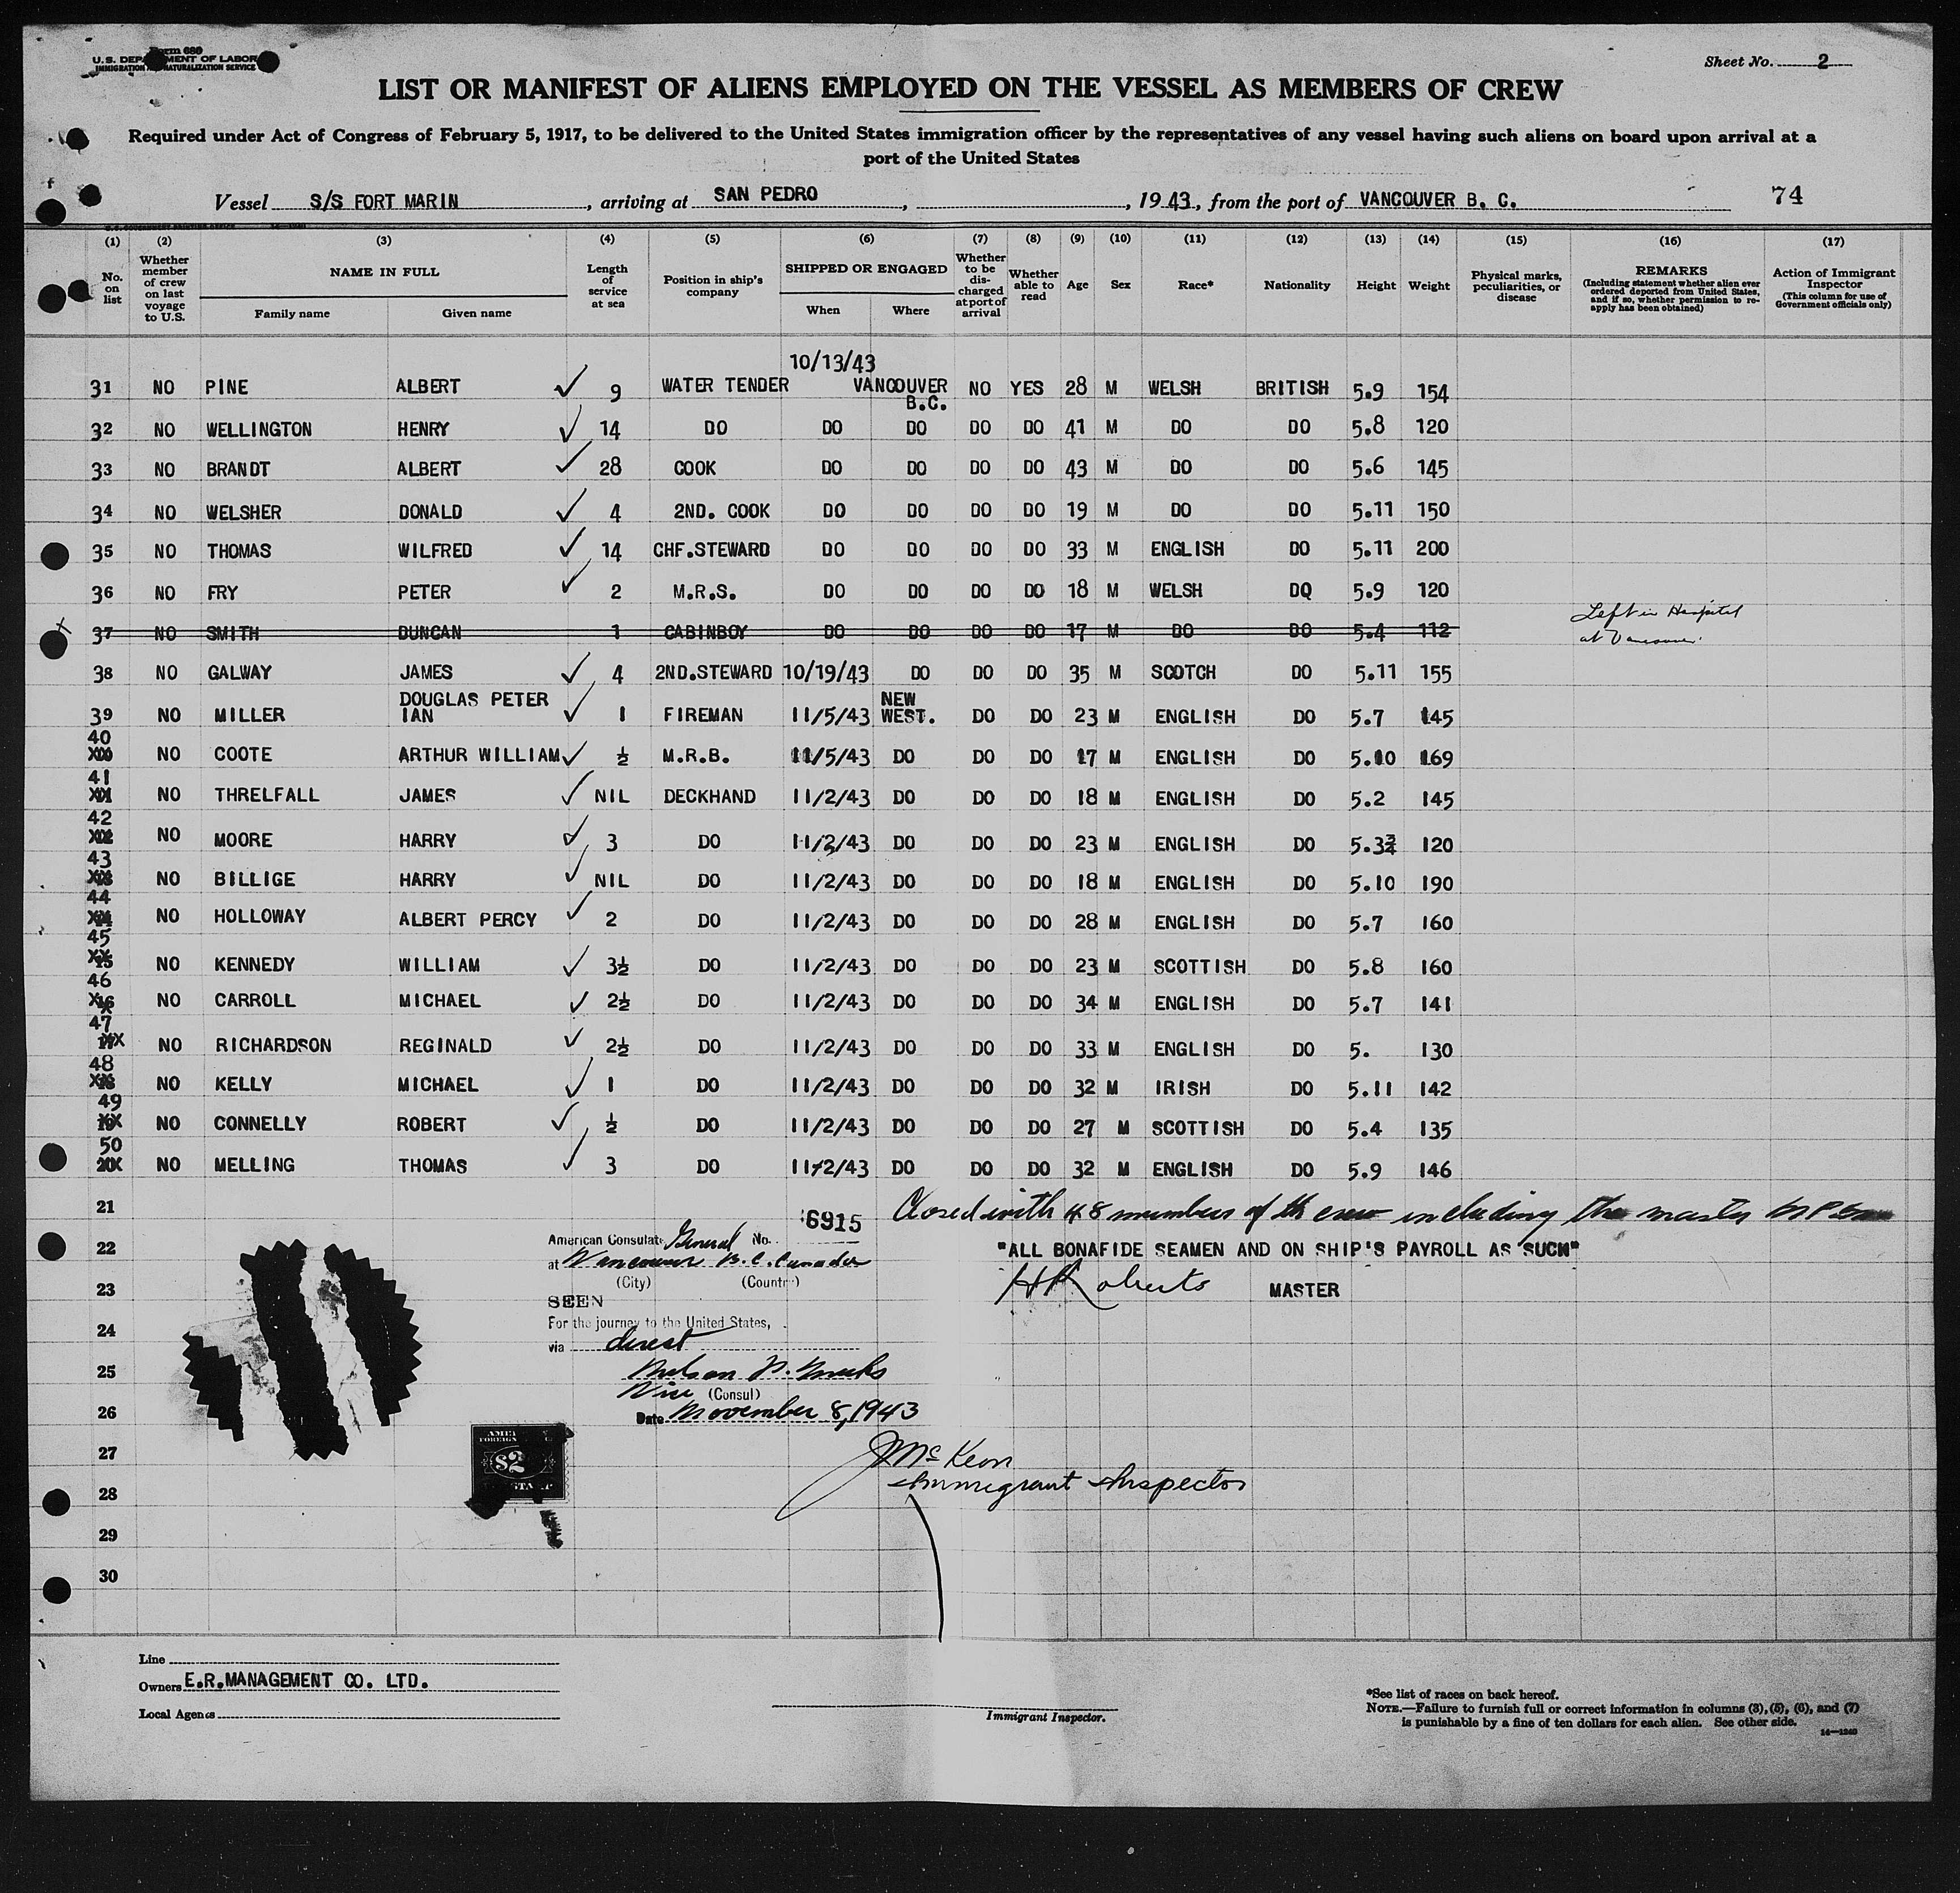 Form 680
U.S. DEPARTMENT OF LABOR
IMMIGRATION NATURALIZATION SERVICE
Sheet No. 2
LIST OR MANIFEST OF ALIENS EMPLOYED ON THE VESSEL AS MEMBERS OF CREW
Required under Act of Congress of February 5, 1917, to be delivered to the United States immigration officer by the representatives of any vessel having such aliens on board upon arrival at a
port of the United States
Vessel S/S FORT MARIN, arriving at SAN PEDRO, , 1943, from the port of VANCOUVER B. C. 74
(1) (2) (3) (4) (5) (6) (7) (8) (9) (10) (11) (12) (13) (14) (15) (16) (17)
No. on list
Whether member of crew on last voyage to U.S.
NAME IN FULL
Family name Given name
Length of service at sea
Position in ship's company
SHIPPED OR ENGAGED
When Where
Whether to be discharged at port of arrival
Whether able to read
Age
Sex
Race*
Nationality
Height
Weight
Physical marks, peculiarities, or disease
REMARKS
(Including statement whether alien ever ordered deported from United States, and if so, whether permission to re-apply has been obtained)
Action of Immigrant Inspector
(This column for use of Government officials only)
10/13/43
31 NO PINE ALBERT ✓ 9 WATER TENDER VANCOUVER B.C. NO YES 28 M WELSH BRITISH 5.9 154
32 NO WELLINGTON HENRY ✓ 14 DO DO DO DO DO 41 M DO DO 5.8 120
33 NO BRANDT ALBERT ✓ 28 COOK DO DO DO DO 43 M DO DO 5.6 145
34 NO WELSHER DONALD ✓ 4 2ND. COOK DO DO DO DO 19 M DO DO 5.11 150
35 NO THOMAS WILFRED ✓ 14 CHF.STEWARD DO DO DO DO 33 M ENGLISH DO 5.11 200
36 NO FRY PETER ✓ 2 M.R.S. DO DO DO DO 18 M WELSH DO 5.9 120
37 NO SMITH DUNCAN 1 CABINBOY DO DO DO DO 17 M DO DO 5.4 112 Left in Hospital at Vancouver
38 NO GALWAY JAMES ✓ 4 2ND.STEWARD 10/19/43 DO DO DO 35 M SCOTCH DO 5.11 155
39 NO MILLER DOUGLAS PETER IAN ✓ 1 FIREMAN 11/5/43 NEW WEST. DO DO 23 M ENGLISH DO 5.7 145
40 NO COOTE ARTHUR WILLIAM ✓ ½ M.R.B. 11/5/43 DO DO DO 17 M ENGLISH DO 5.10 169
41 NO THRELFALL JAMES ✓ NIL DECKHAND 11/2/43 DO DO DO 18 M ENGLISH DO 5.2 145
42 NO MOORE HARRY ✓ 3 DO 11/2/43 DO DO DO 23 M ENGLISH DO 5.3¾ 120
43 NO BILLIGE HARRY ✓ NIL DO 11/2/43 DO DO DO 18 M ENGLISH DO 5.10 190
44 NO HOLLOWAY ALBERT PERCY ✓ 2 DO 11/2/43 DO DO DO 28 M ENGLISH DO 5.7 160
45 NO KENNEDY WILLIAM ✓ 3½ DO 11/2/43 DO DO DO 23 M SCOTTISH DO 5.8 160
46 NO CARROLL MICHAEL ✓ 2½ DO 11/2/43 DO DO DO 34 M ENGLISH DO 5.7 141
47 NO RICHARDSON REGINALD ✓ 2½ DO 11/2/43 DO DO DO 33 M ENGLISH DO 5. 130
48 NO KELLY MICHAEL ✓ 1 DO 11/2/43 DO DO DO 32 M IRISH DO 5.11 142
49 NO CONNELLY ROBERT ✓ ½ DO 11/2/43 DO DO DO 27 M SCOTTISH DO 5.4 135
50 NO MELLING THOMAS ✓ 3 DO 11/2/43 DO DO DO 32 M ENGLISH DO 5.9 146
21 Closed with 48 members of the crew including the master
6915
American Consulate General No.
22 "ALL BONAFIDE SEAMEN AND ON SHIP'S PAYROLL AS SUCH"
at Vancouver B.C. Canada
(City) (Country)
23 H Roberts MASTER
SEEN
24 For the journey to the United States,
via direct
25
Vice (Consul)
26 Date November 8, 1943
$2
27 J McKeon
28 Immigrant Inspector
29
30
Line
Owners E.R.MANAGEMENT CO. LTD.
Local Agents
Immigrant Inspector.
*See list of races on back hereof.
NOTE.—Failure to furnish full or correct information in columns (3), (5), (6), and (7)
is punishable by a fine of ten dollars for each alien. See other side.
14—1240